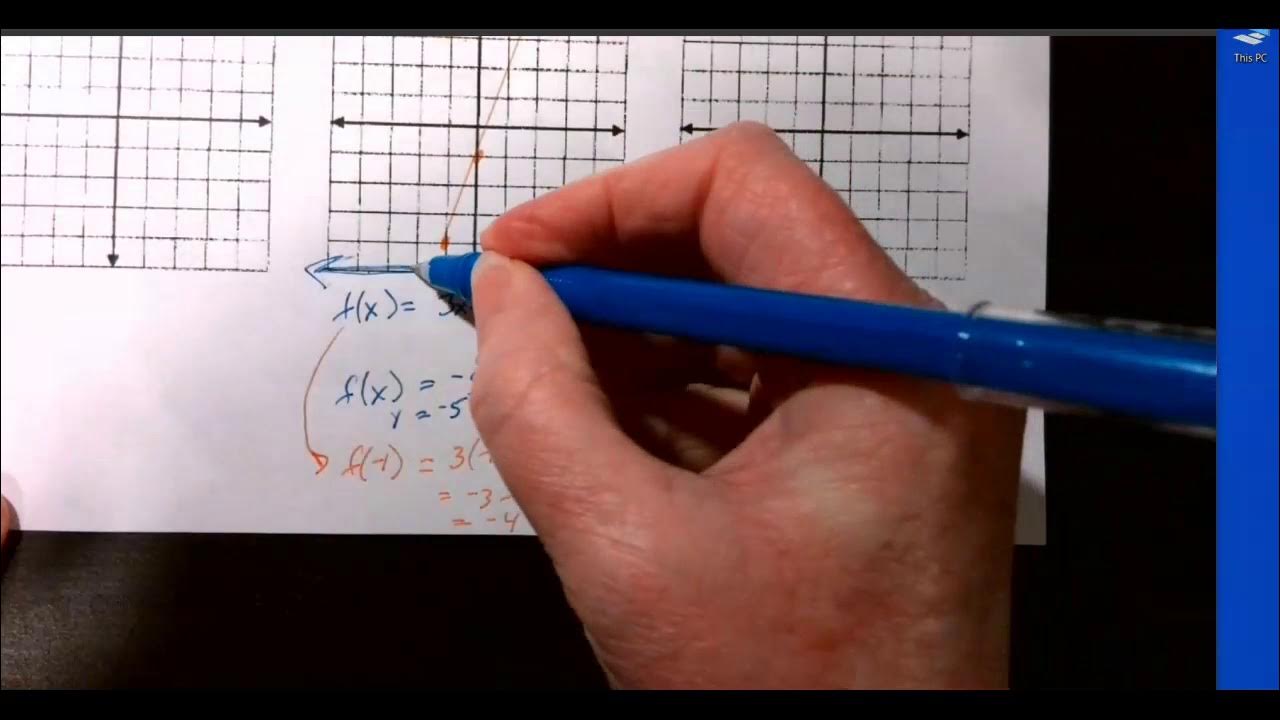 This PC
f(x) = 3x
f(x) = -
y = -5
f(-1) = 3(-
= -3 -
= -4